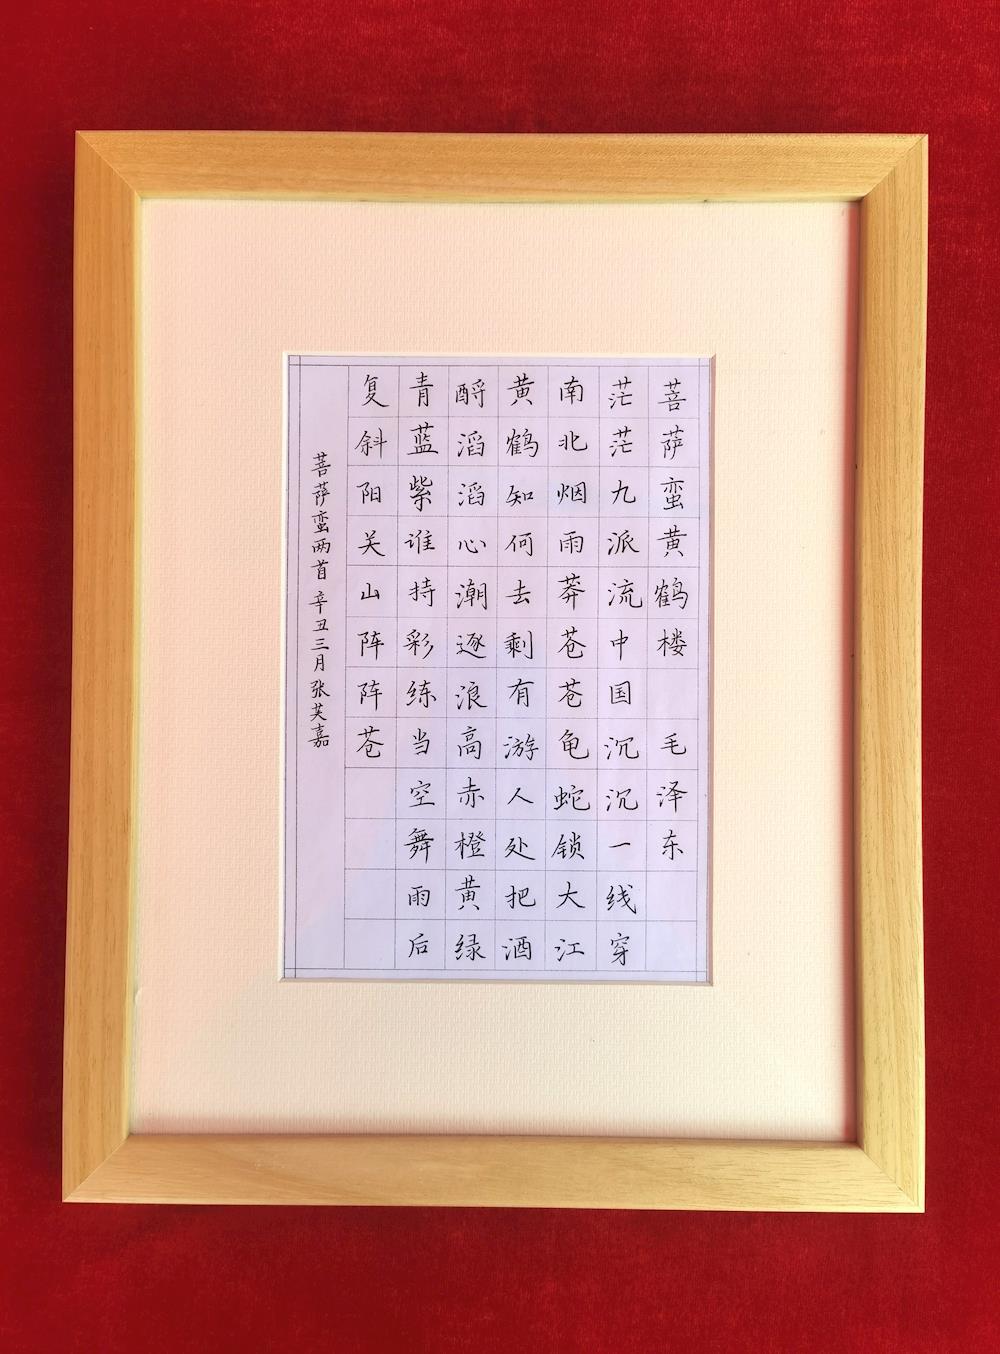 菩萨蛮黄鹤楼 毛泽东
茫茫九派流中国沉沉一线穿
南北烟雨莽苍苍龟蛇锁大江
黄鹤知何去剩有游人处把酒
酹滔滔心潮逐浪高赤橙黄绿
青蓝紫谁持彩练当空舞雨后
复斜阳关山阵阵苍
菩萨蛮两首 辛丑三月 张芙嘉